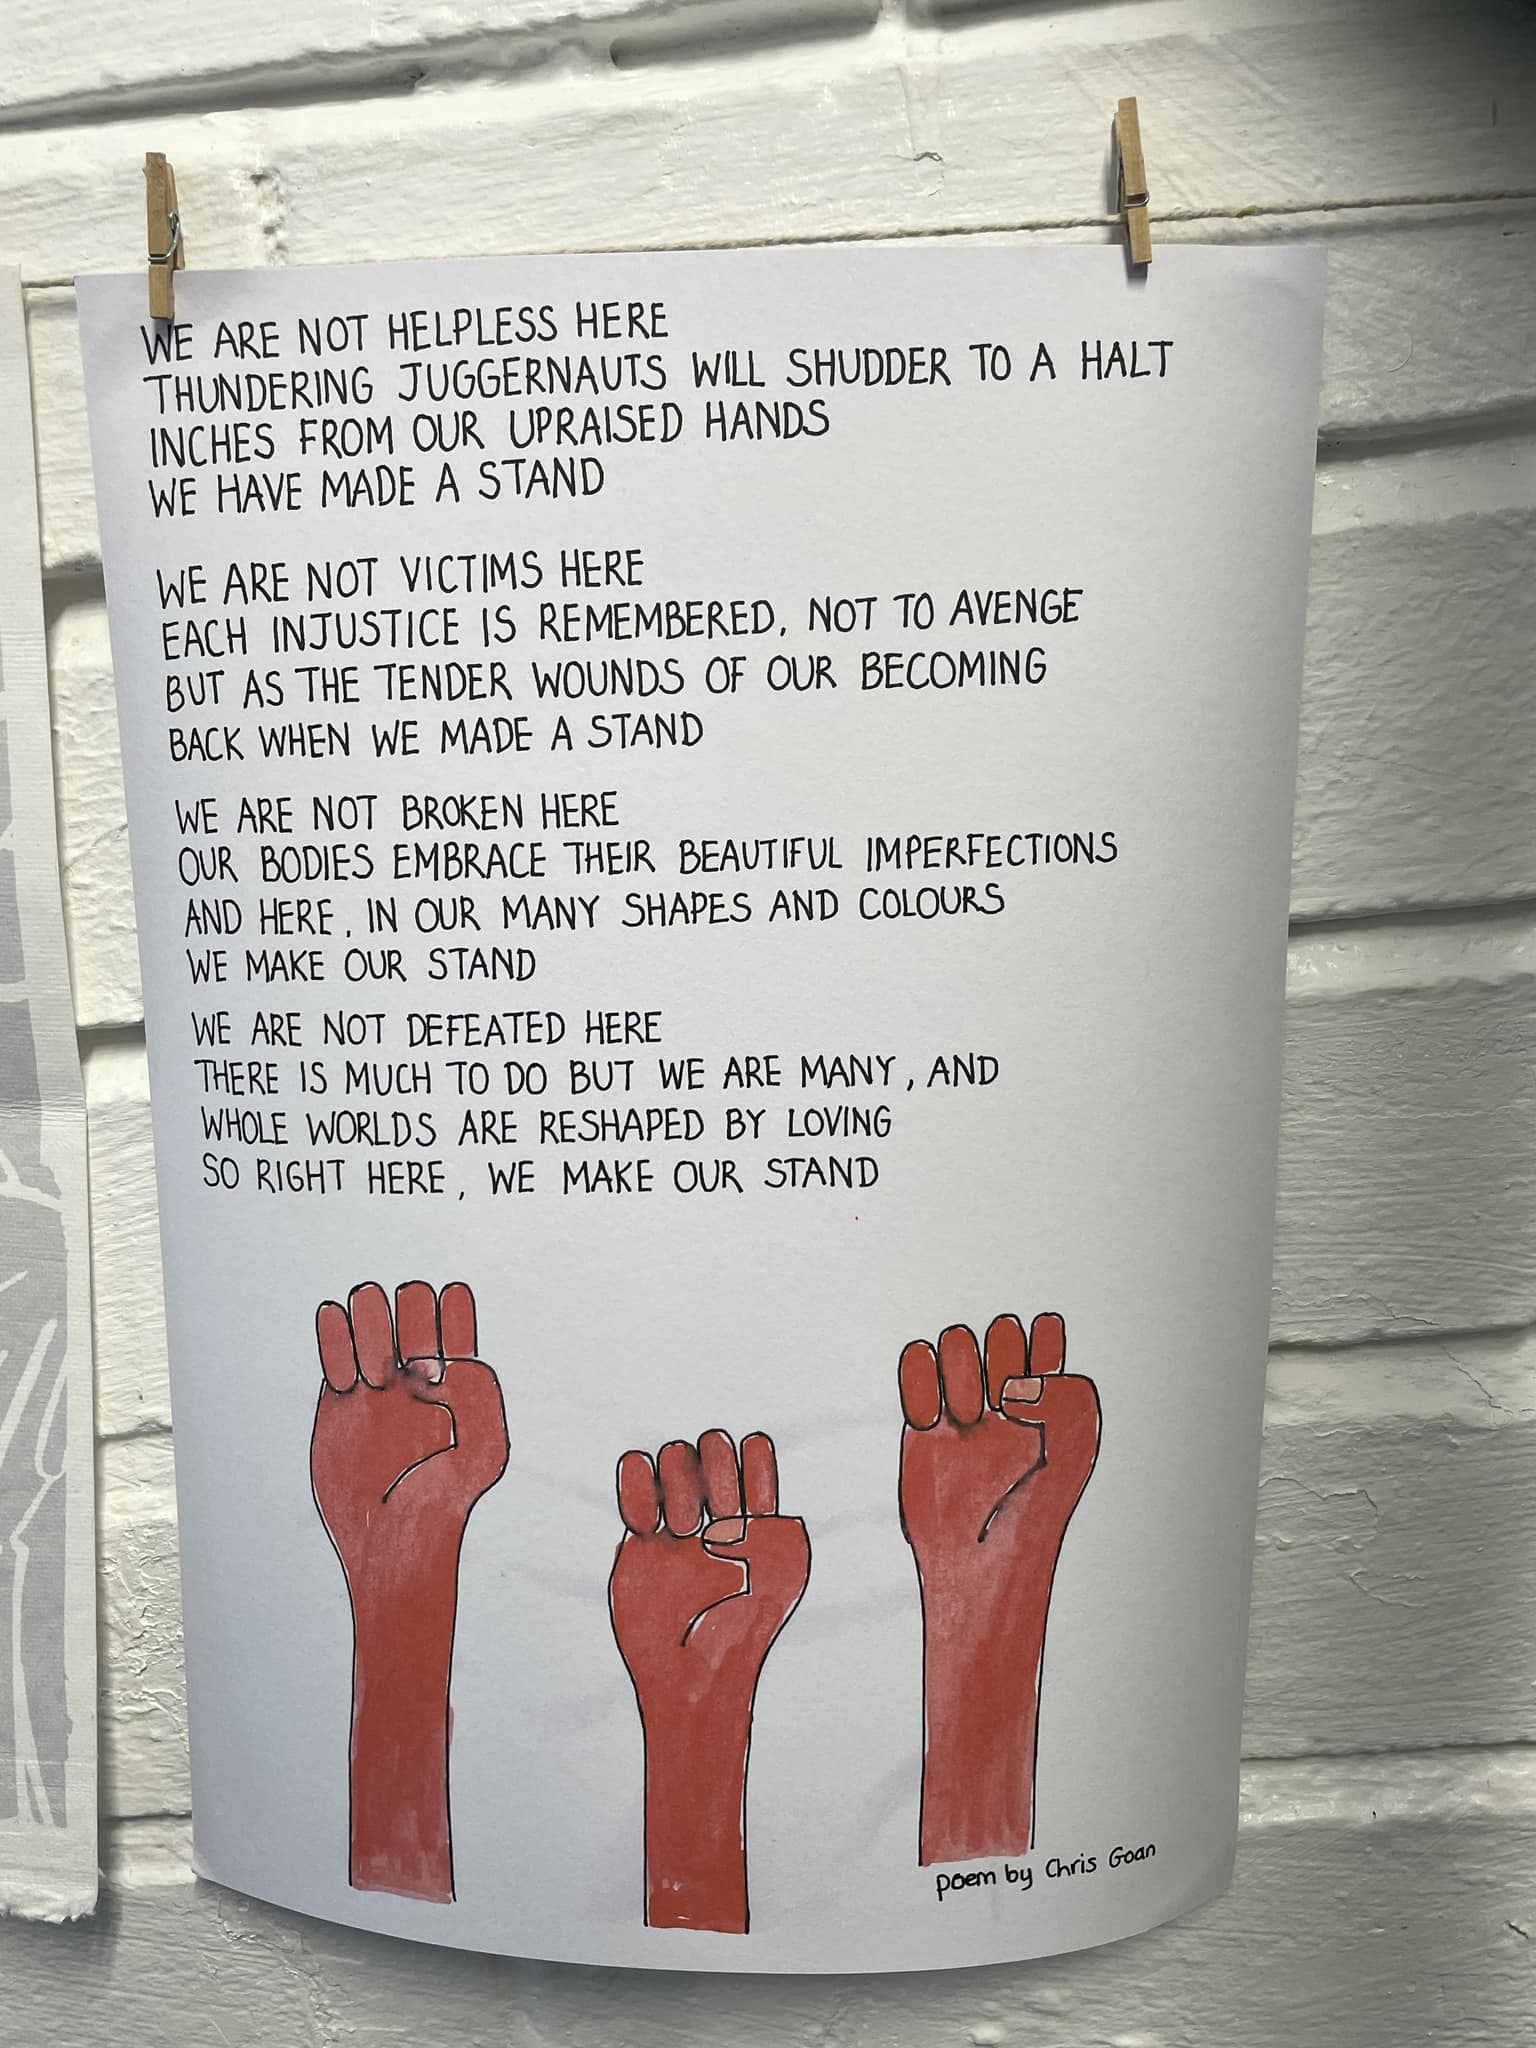 WE ARE NOT HELPLESS HERE
THUNDERING JUGGERNAUTS WILL SHUDDER TO A HALT
INCHES FROM OUR UPRAISED HANDS
WE HAVE MADE A STAND
WE ARE NOT VICTIMS HERE
EACH INJUSTICE IS REMEMBERED, NOT TO AVENGE
BUT AS THE TENDER WOUNDS OF OUR BECOMING
BACK WHEN WE MADE A STAND
WE ARE NOT BROKEN HERE
OUR BODIES EMBRACE THEIR BEAUTIFUL IMPERFECTIONS
AND HERE, IN OUR MANY SHAPES AND COLOURS
WE MAKE OUR STAND
WE ARE NOT DEFEATED HERE
THERE IS MUCH TO DO BUT WE ARE MANY, AND
WHOLE WORLDS ARE RESHAPED BY LOVING
SO RIGHT HERE, WE MAKE OUR STAND
poem by Chris Goan